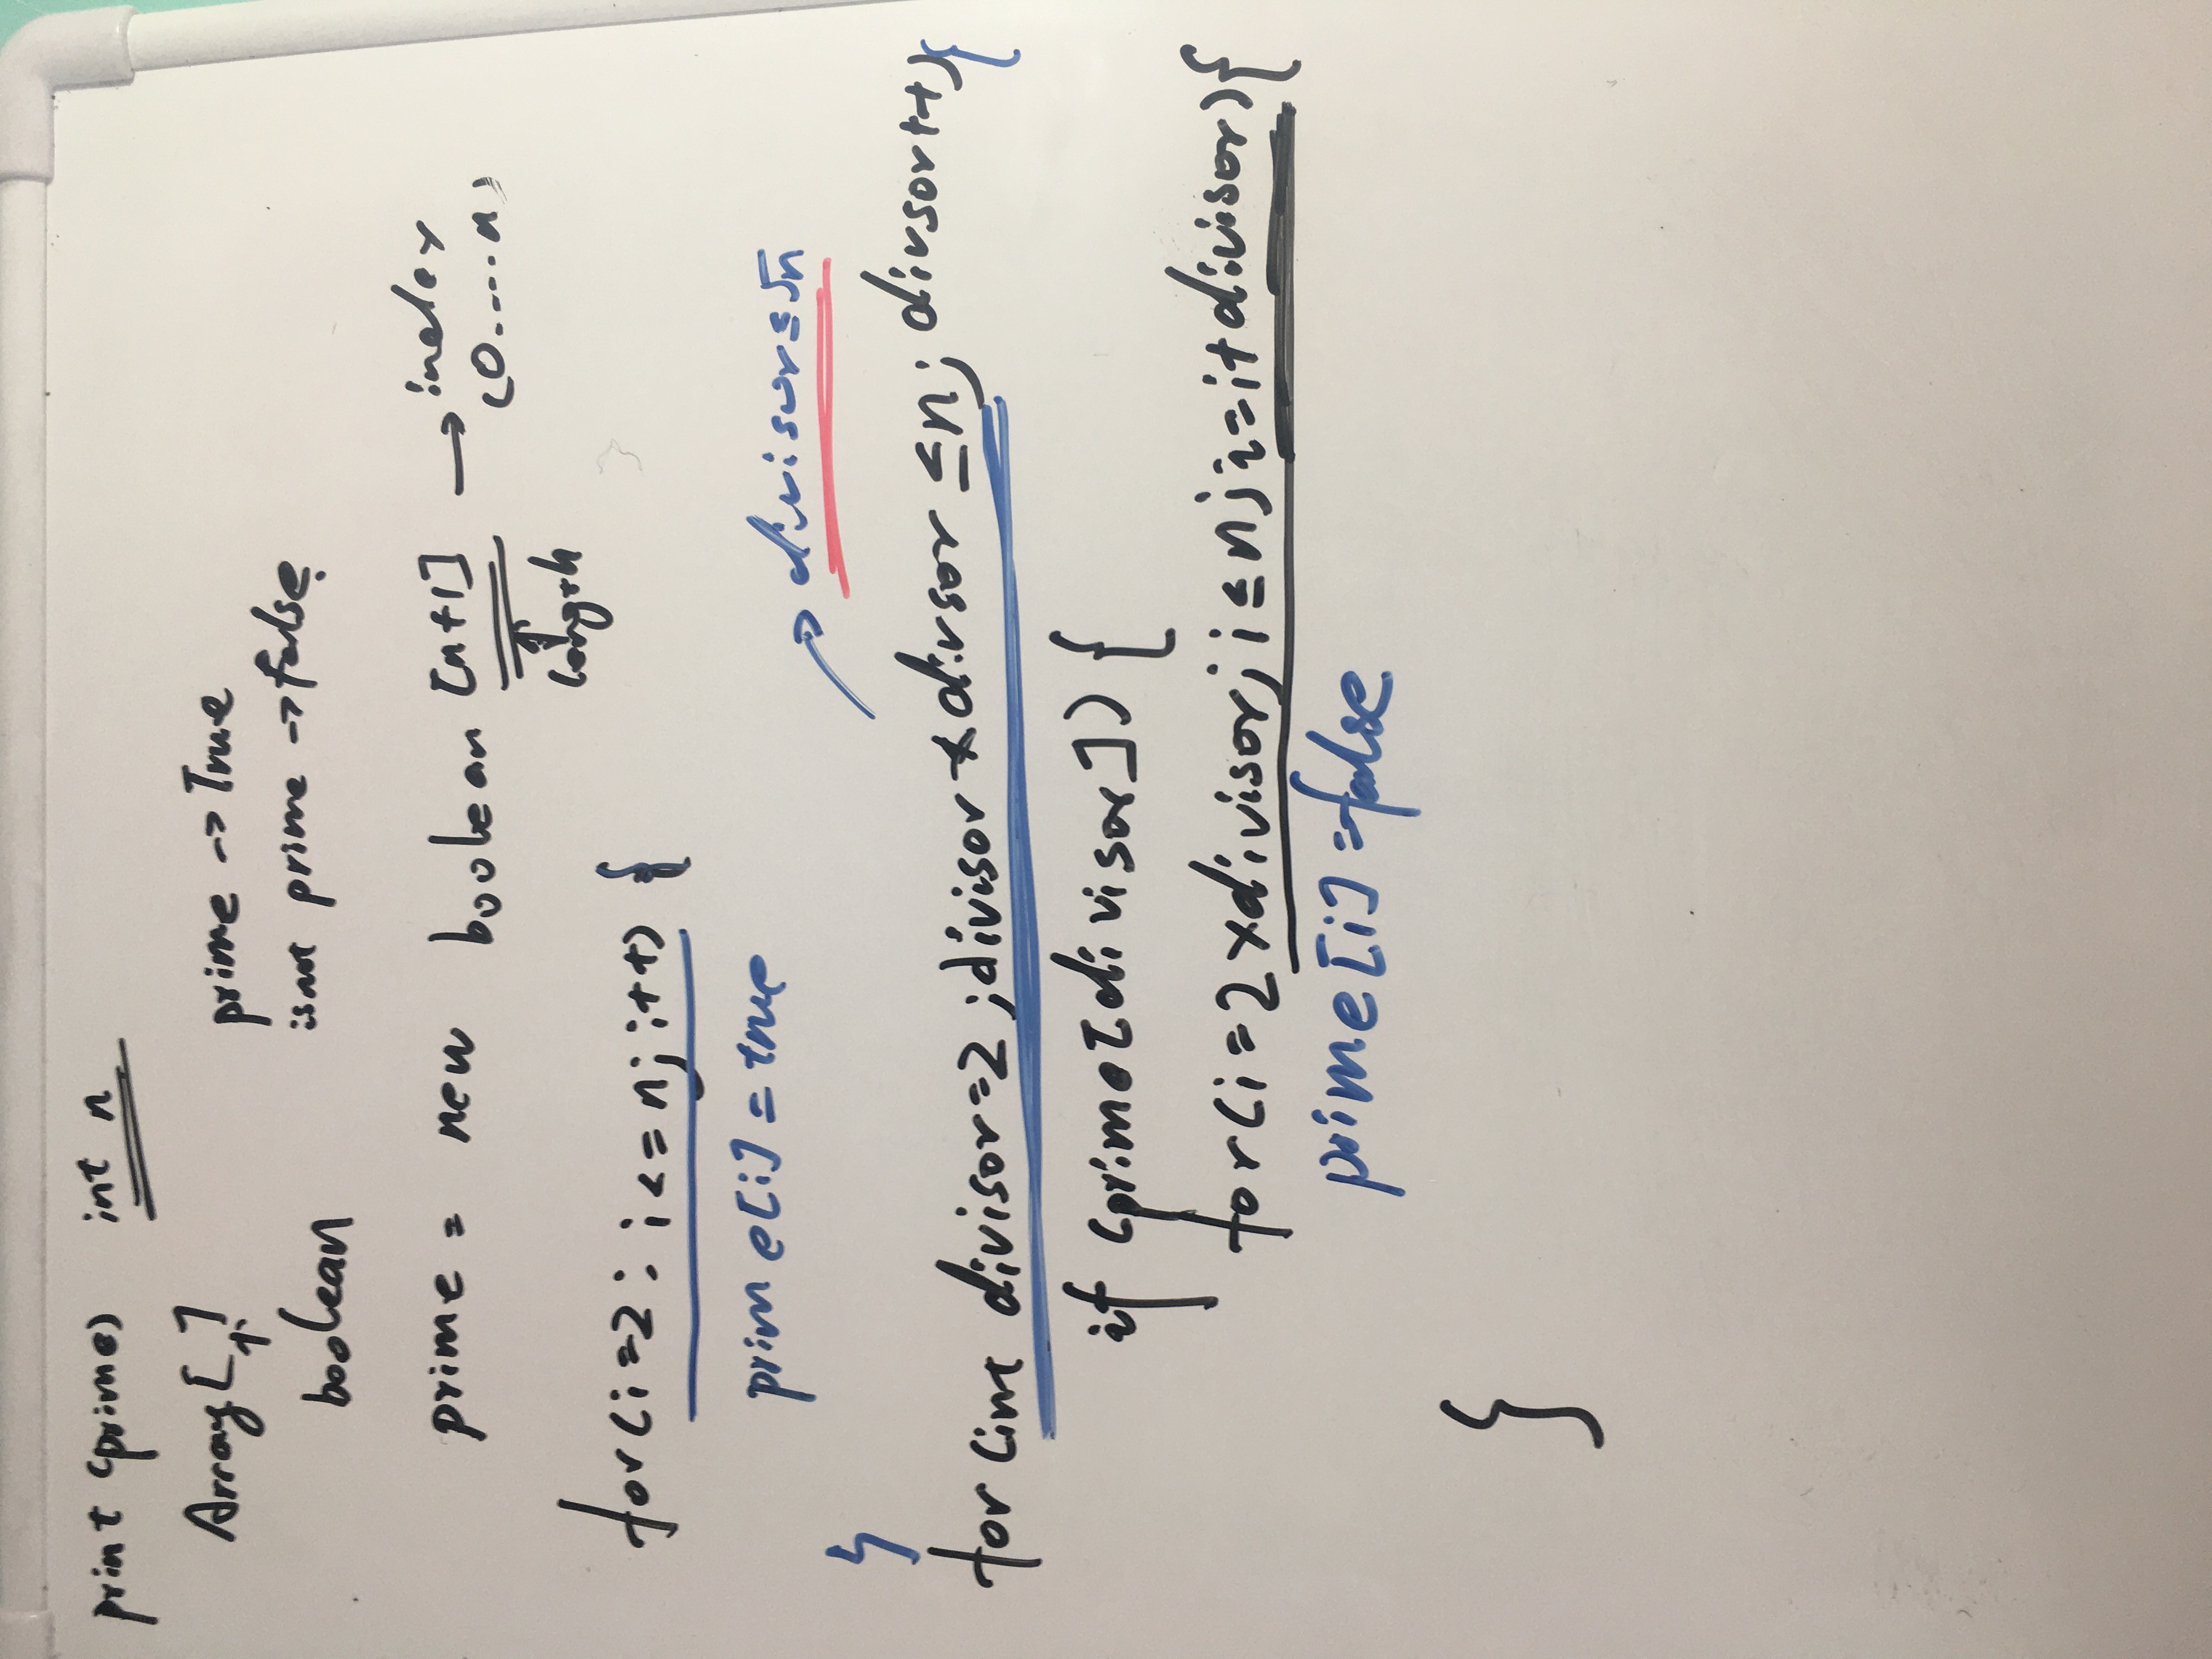 print (prime) int n
Array[ ] prime -> True
boolean isnot prime -> false
prime = new boolean [n+1] → index
(0....n)
↑
length
for(i=2; i<=n; i++) {
prime[i] = true
→ divisor≤√n
}
for (int divisor=2 ;divisor * divsor ≤n; divsor++){
if (prime[divisor]) {
for(i=2×divisor; i≤n; i=i+divisor){
prime[i]=false
}